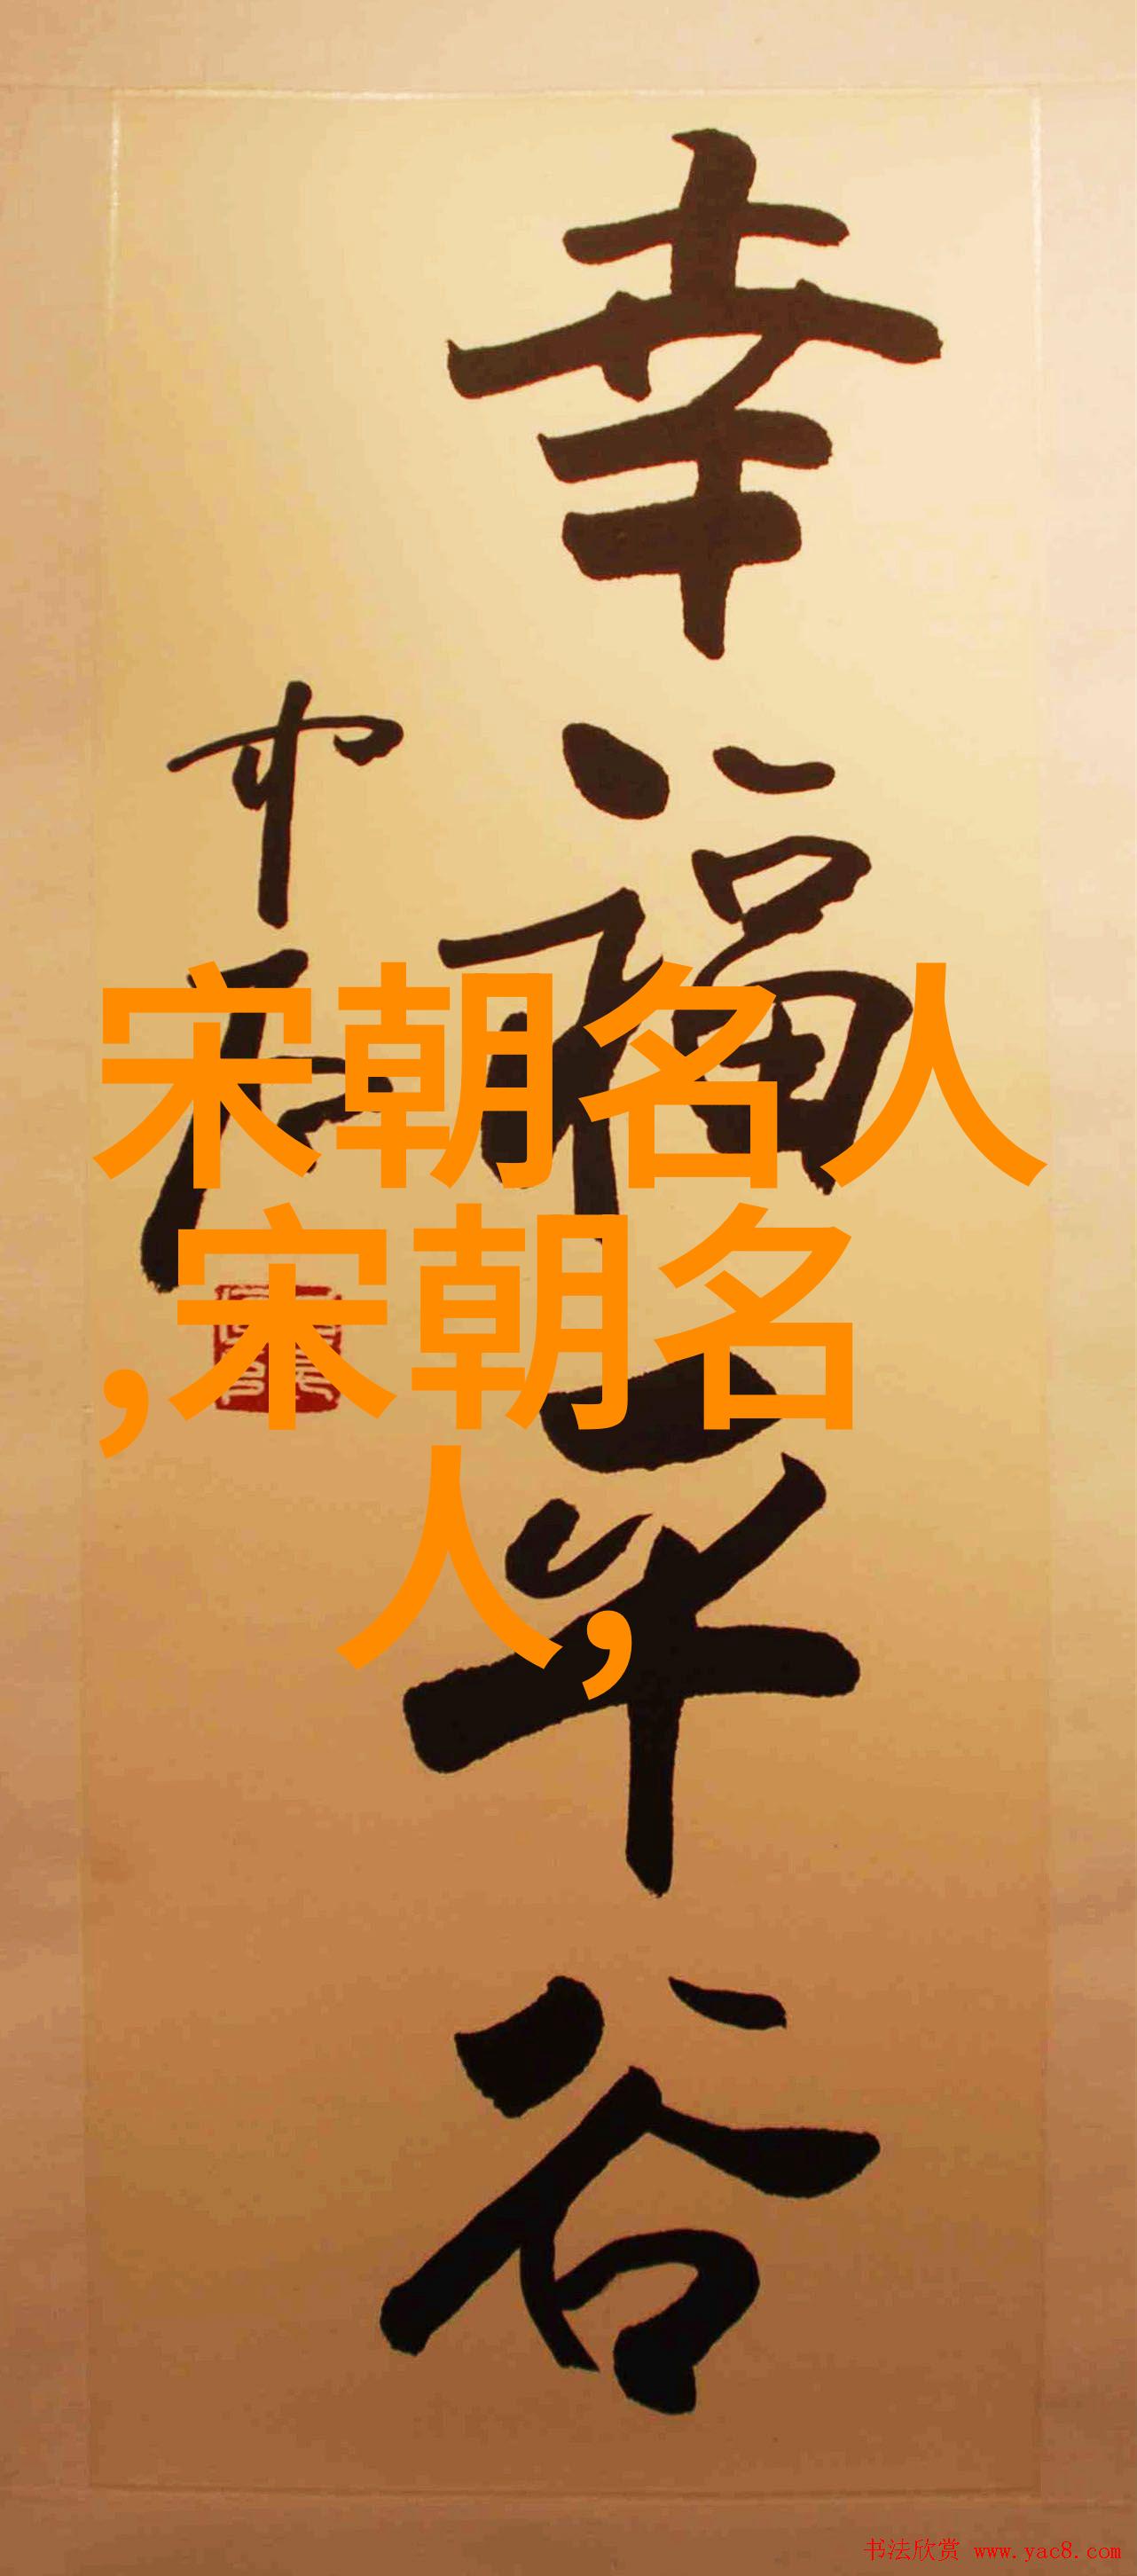 幸福平谷
中石
宋朝名人
,宋朝名
人,
书法欣赏 www.yac8.com